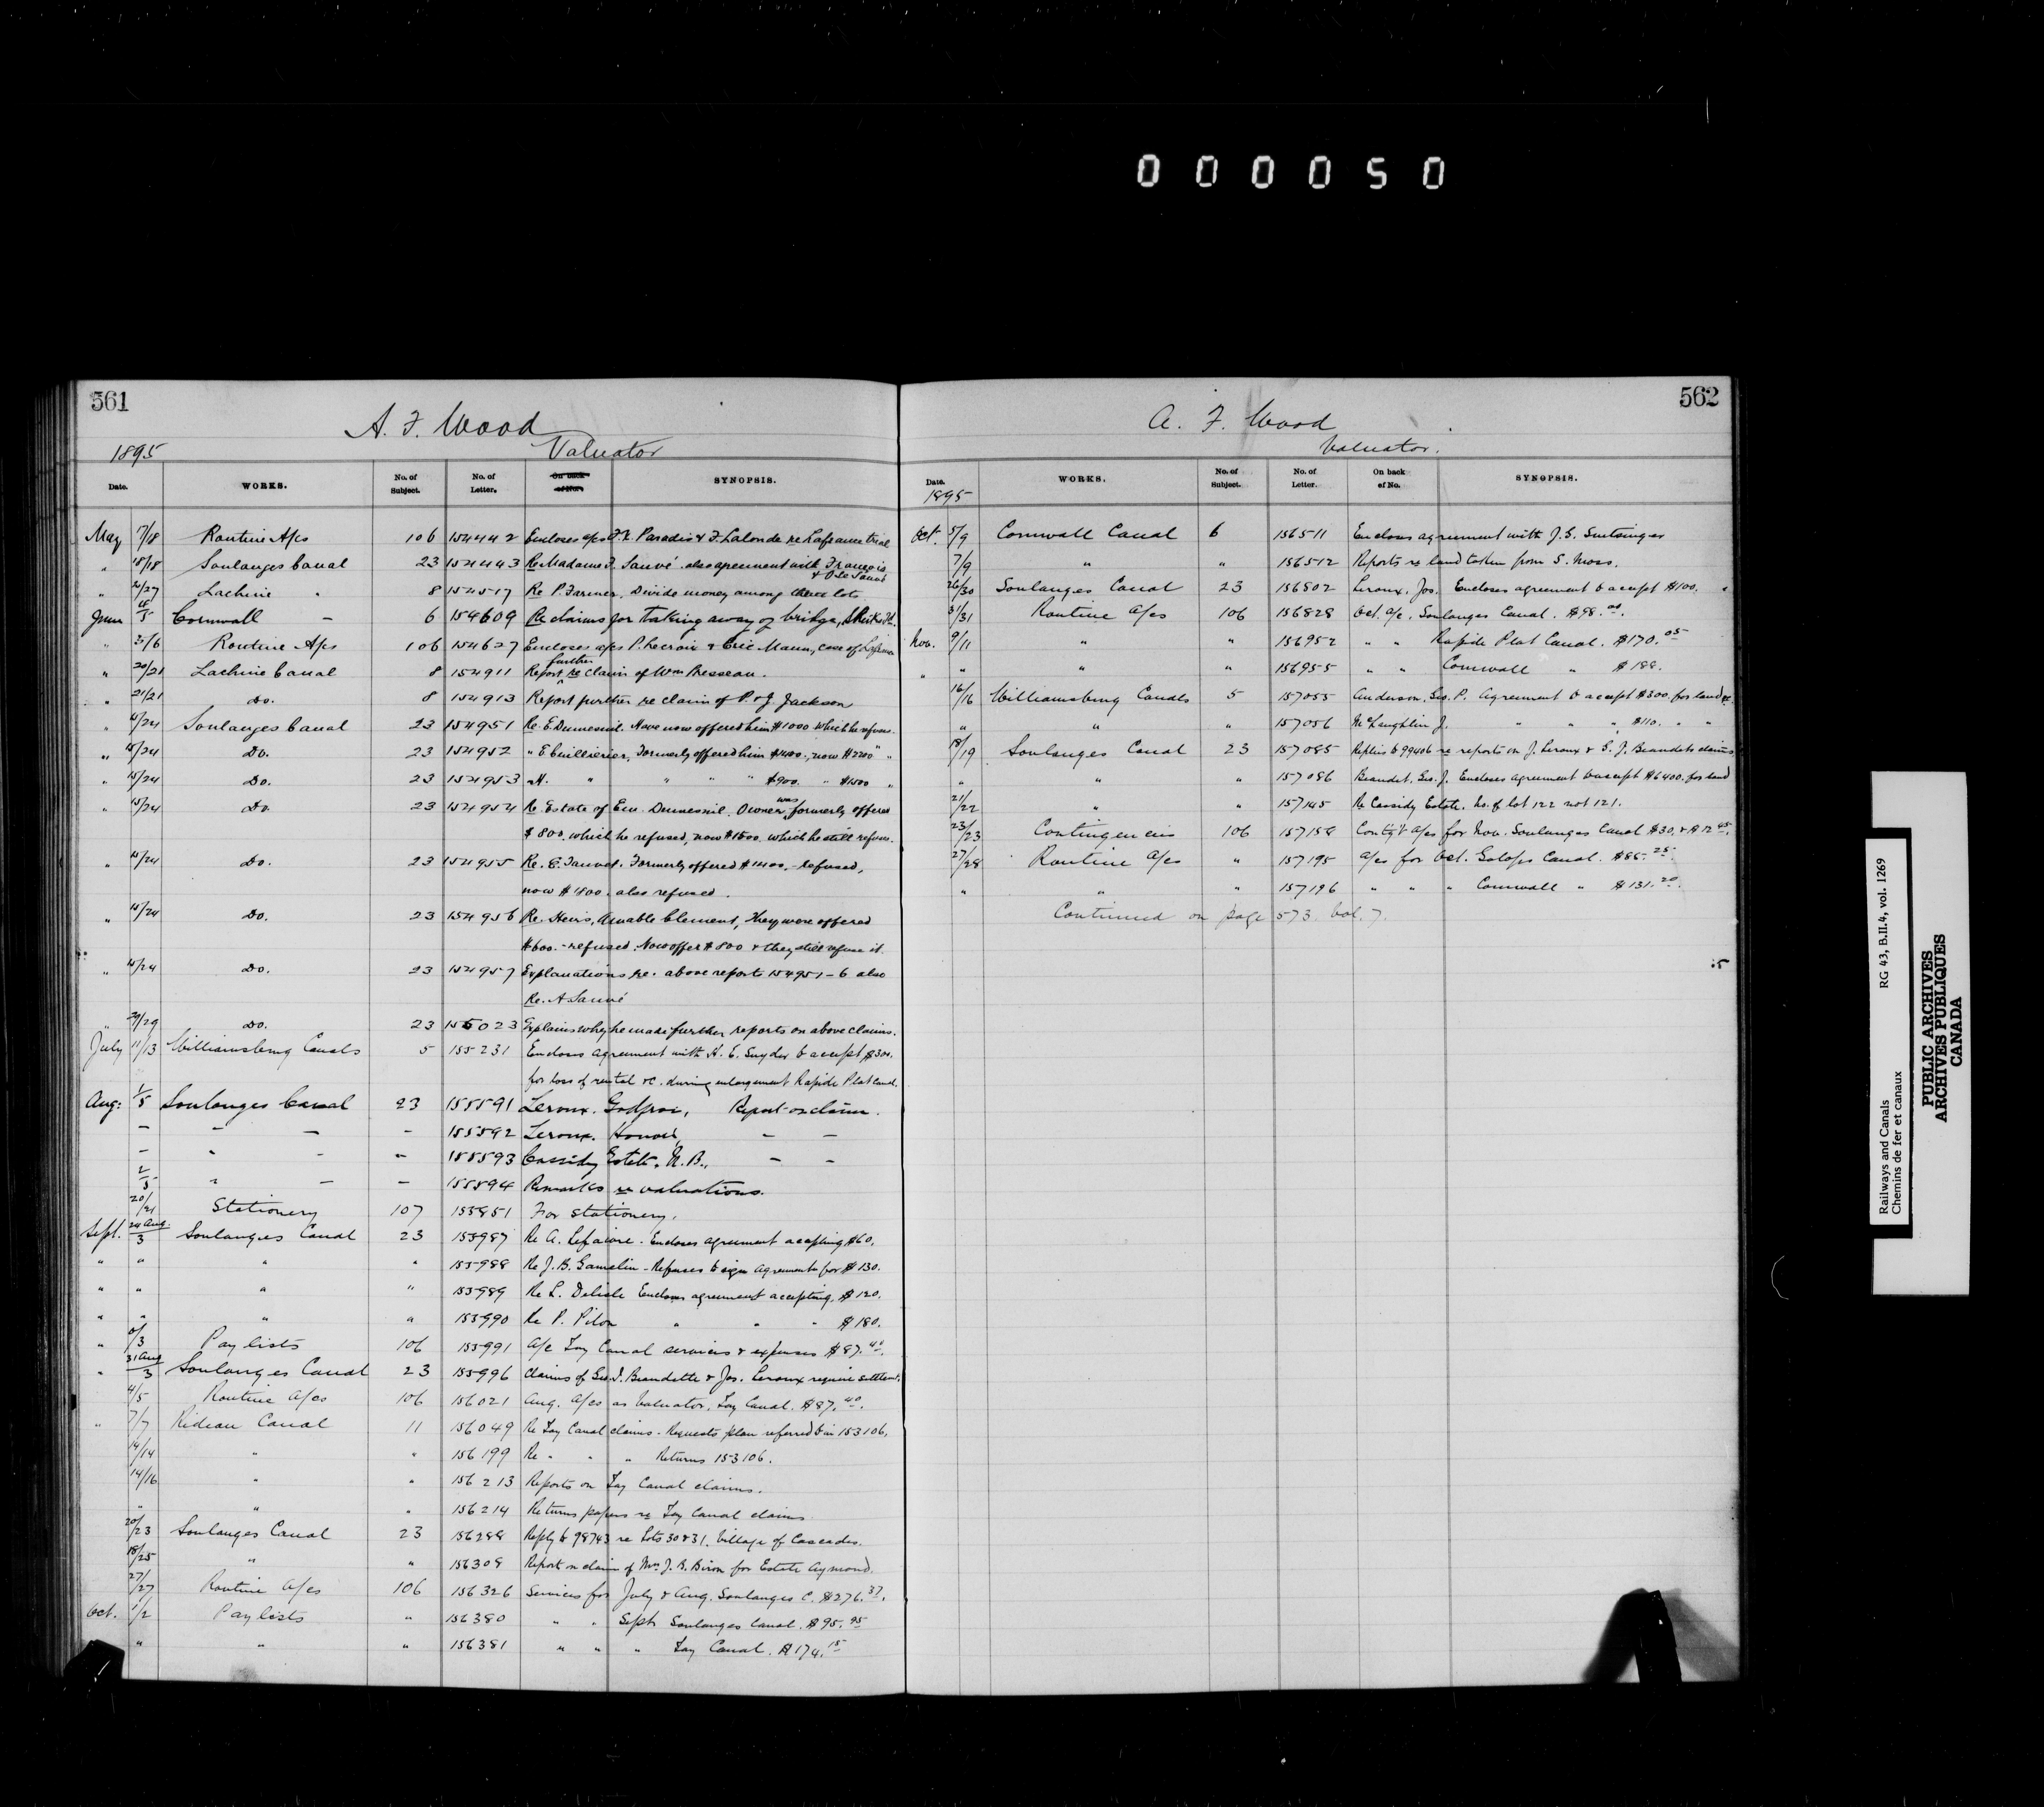 000050
561
A. F. Wood
Valuator
1895
Date. WORKS. No. of Subject. No. of Letter. On back of No. SYNOPSIS.
May 17/18 Routine A/cs 106 154442 Encloses a/cs F. X. Paradis & F. Lalonde re Lafrance trial
" 18/18 Soulanges Canal 23 154443 Re Madame F. Sauvé also agreement with François
& Sauvé
" 24/27 Lachine " 8 154517 Re P. Farmer. Divide money among three lots
June 4/5 Cornwall — 6 154609 Re claims for taking away of bridge,
" 3/6 Routine A/cs 106 154627 Encloses a/cs P. Lecroix & Eric Mann, case of
" 20/21 Lachine Canal 8 154911 Report further re claim of Wm Bresseau.
" 21/21 Do. 8 154913 Report further re claim of P. & J. Jackson
" 15/24 Soulanges Canal 23 154951 Re. E. Dumesnil. Have now offered him $1000 which he refuses.
" 15/24 Do. 23 154952 " E Cuillierier, Formerly offered him $1400., now $2200 " "
" 15/24 Do. 23 154953 " A. " " " " $900. " $1500 "
" 15/24 Do. 23 154954 Re. Estate of Em. Dumesnil. Owner was formerly offered
$800. which he refused, now $1500. which he still refuses.
" 15/24 Do. 23 154955 Re. E. Formerly offered $1400. - refused,
now $1800. also refused.
" 15/24 Do. 23 154956 Re. Heirs, Amable Clement, They were offered
$600. - refused. Now offer $800 & they still refuse it.
" 15/24 Do. 23 154957 Explanations re. above reports 154951-6 also
Re. A Sauvé
" 29/29 Do. 23 155023 Explains why he made further reports on above claims.
July 11/13 Williamsburg Canals 5 155231 Encloses agreement with H. C. Snyder to accept $300.
for loss of rental &c. during enlargement Rapide Plat Canal.
Aug: 1/5 Soulanges Canal 23 155591 Leroux. Godfroi, Report on claim.
— — — — 155592 Leroux. Honoré, — —
— " — — 155593 Cassidy Estate. N. B., — —
2/5 " — — 155594 Remarks re valuations.
20/21 Stationery 107 155851 For stationery.
Sept. 24 Aug./3 Soulanges Canal 23 155987 Re A. Lefaivre. Encloses agreement accepting $60.
" " " " 155988 Re J. B. Gamelin - Refuses to sign agreement for $130.
" " " " 155989 Re L. Delisle Encloses agreement accepting. $120.
" " " " 155990 Re P. Pilon " " " $180.
" 0/3 Pay lists 106 155991 A/c Tay Canal services & expenses $87.40.
" 31 Aug/3 Soulanges Canal 23 155996 Claims of Geo. J. Beaudette & Jos. Leroux require settlemt.
4/5 Routine A/cs 106 156021 Aug. A/cs as Valuator, Tay Canal. $87.40.
" 7/7 Rideau Canal 11 156049 Re Tay Canal claims - Requests plan referred to in 153106.
14/14 " " 156199 Re " " " Returns 153106.
14/16 " " 156213 Reports on Tay Canal claims.
" " " 156214 Returns papers re Tay Canal claims.
20/23 Soulanges Canal 23 156288 Reply to 98743 re Lots 30 & 31. Village of Cascades.
18/25 " " 156308 Report on claim of Mrs J. B. Biron for Estate Aymond.
27/27 Routine A/cs 106 156326 Services for July & Aug. Soulanges C. $276.37.
Oct. 1/2 Pay lists " 156380 " " Sept. Soulanges Canal. $95.95
" " " 156381 " " " Tay Canal. $174.15
562
A. F. Wood
Valuator.
Date. WORKS. No. of Subject. No. of Letter. On back of No. SYNOPSIS.
1895
Oct. 5/9 Cornwall Canal 6 156511 Encloses agreement with J. G. Snetsinger
7/9 " " 156512 Reports re land taken from S. Moss.
26/30 Soulanges Canal 23 156802 Leroux. Jos. Encloses agreement to accept $100.
31/31 Routine A/cs 106 156828 Oct. a/c. Soulanges Canal. $98.
Nov. 9/11 " " 156952 " " Rapide Plat Canal. $170.05
" " " 156955 " " Cornwall " $188.
16/16 Williamsburg Canals 5 157055 Anderson, Geo. P. Agreement to accept $300. for land &c.
" " " 157056 McLaughlin J. " " " $110. " "
18/19 Soulanges Canal 23 157085 Replies to 99406 re reports on J. Leroux & G. J. Beaudets claims
" " " 157086 Beaudet. Geo. J. Encloses agreement to accept $6400. for land
21/22 " " 157145 Re Cassidy Estate. No. of lot 122 not 121.
23/23 Contingencies 106 157158 Contgt a/cs for Nov. Soulanges Canal $30. & $12
27/28 Routine A/cs " 157195 A/cs for Oct. Galops Canal. $86.25.
" " " 157196 " " " Cornwall " $131.20.
Continued on page 573 Vol. 7.
Railways and Canals RG 43, B.II.4, vol. 1269
Chemins de fer et canaux
PUBLIC ARCHIVES
ARCHIVES PUBLIQUES
CANADA